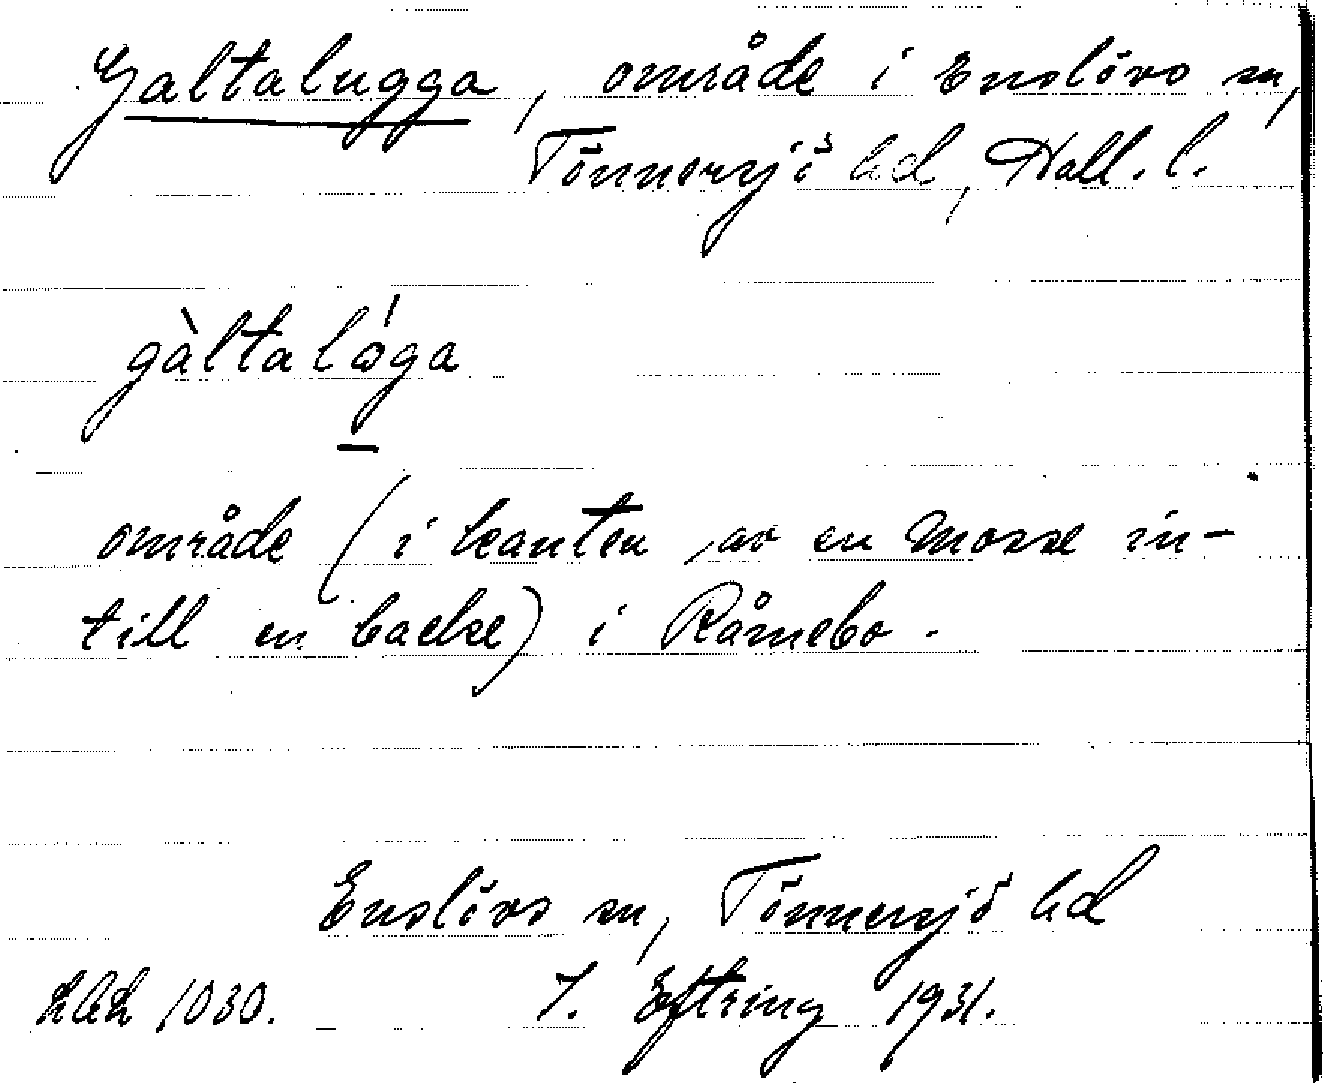 Galtalugga, område i Enslövs sn,
Tönnersjö hd, Hall. l.
gàltalóga
område (i kanten av en mosse in-
till en backe) i Råmebo.
Enslövs sn, Tönnersjö hd
1030. J. Eftring 1931.